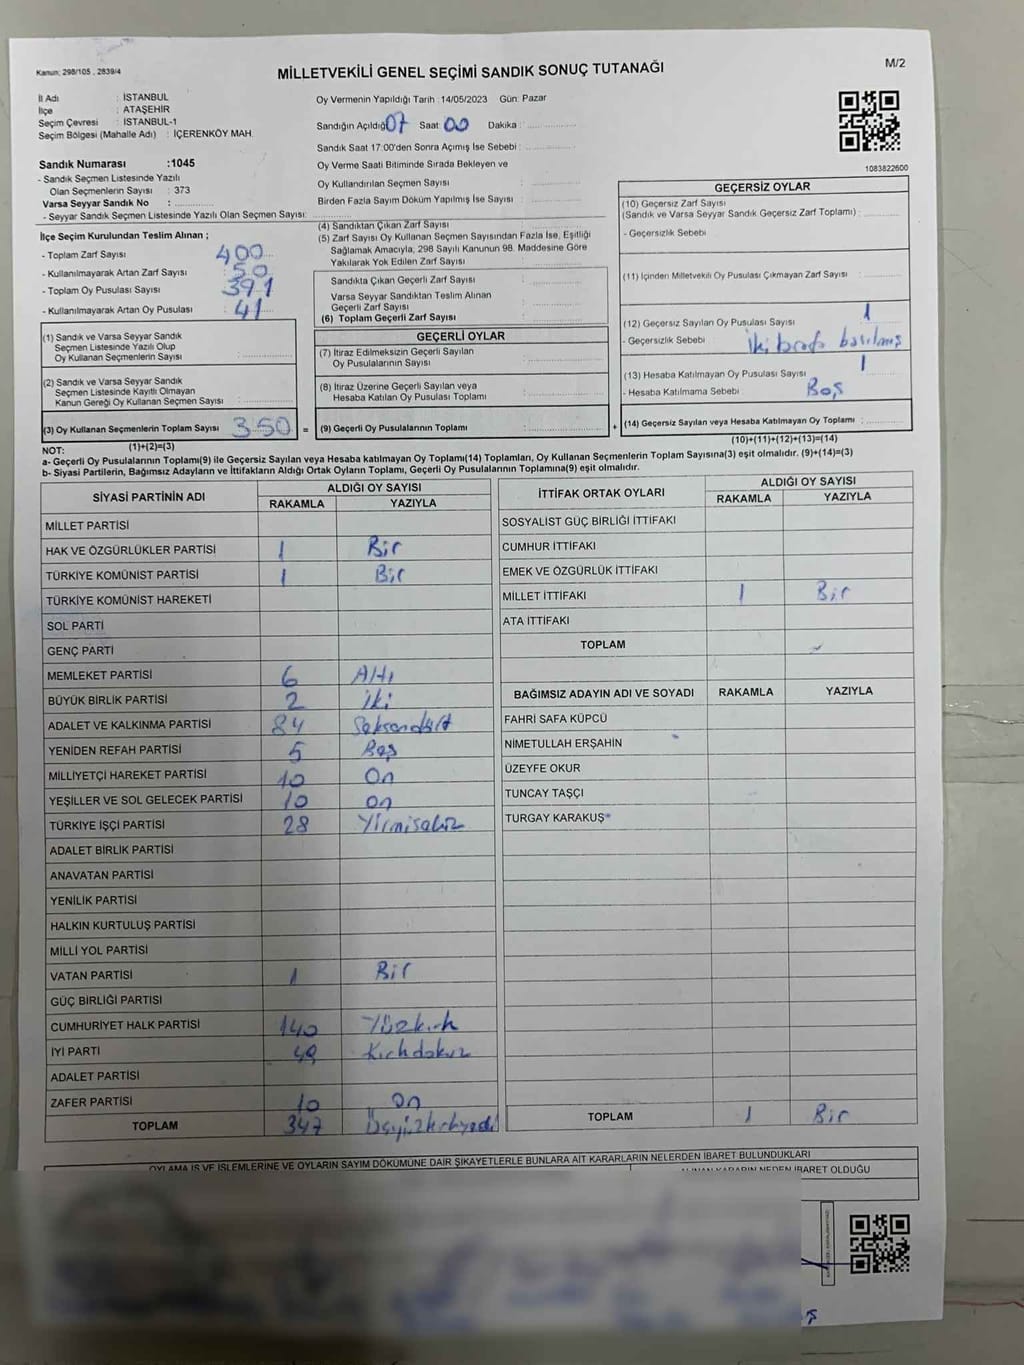 Kanun; 298/105 , 2839/4
MİLLETVEKİLİ GENEL SEÇİMİ SANDIK SONUÇ TUTANAĞI
M/2
İl Adı : İSTANBUL
İlçe : ATAŞEHİR
Seçim Çevresi : İSTANBUL-1
Seçim Bölgesi (Mahalle Adı) : İÇERENKÖY MAH.
Sandık Numarası :1045
- Sandık Seçmen Listesinde Yazılı
Olan Seçmenlerin Sayısı : 373
Varsa Seyyar Sandık No :
- Seyyar Sandık Seçmen Listesinde Yazılı Olan Seçmen Sayısı:
Oy Vermenin Yapıldığı Tarih :14/05/2023 Gün: Pazar
Sandığın Açıldığı 07 Saat 00 Dakika :
Sandık Saat 17:00'den Sonra Açımış İse Sebebi :
Oy Verme Saati Bitiminde Sırada Bekleyen ve
Oy Kullandırılan Seçmen Sayısı :
Birden Fazla Sayım Döküm Yapılmış İse Sayısı :
1083822600
İlçe Seçim Kurulundan Teslim Alınan ;
- Toplam Zarf Sayısı 400
- Kullanılmayarak Artan Zarf Sayısı 50
- Toplam Oy Pusulası Sayısı 391
- Kullanılmayarak Artan Oy Pusulası 41
(1) Sandık ve Varsa Seyyar Sandık
Seçmen Listesinde Yazılı Olup
Oy Kullanan Seçmenlerin Sayısı :
(2) Sandık ve Varsa Seyyar Sandık
Seçmen Listesinde Kayıtlı Olmayan
Kanun Gereği Oy Kullanan Seçmen Sayısı :
(3) Oy Kullanan Seçmenlerin Toplam Sayısı 350 =
(4) Sandıktan Çıkan Zarf Sayısı :
(5) Zarf Sayısı Oy Kullanan Seçmen Sayısından Fazla İse, Eşitliği
Sağlamak Amacıyla, 298 Sayılı Kanunun 98. Maddesine Göre
Yakılarak Yok Edilen Zarf Sayısı :
Sandıkta Çıkan Geçerli Zarf Sayısı :
Varsa Seyyar Sandıktan Teslim Alınan
Geçerli Zarf Sayısı :
(6) Toplam Geçerli Zarf Sayısı :
GEÇERLİ OYLAR
(7) İtiraz Edilmeksizin Geçerli Sayılan
Oy Pusulalarının Sayısı :
(8) İtiraz Üzerine Geçerli Sayılan veya
Hesaba Katılan Oy Pusulası Toplamı :
(9) Geçerli Oy Pusulalarının Toplamı : +
GEÇERSİZ OYLAR
(10) Geçersiz Zarf Sayısı
(Sandık ve Varsa Seyyar Sandık Geçersiz Zarf Toplamı) :
- Geçersizlik Sebebi
(11) İçinden Milletvekili Oy Pusulası Çıkmayan Zarf Sayısı :
(12) Geçersiz Sayılan Oy Pusulası Sayısı : 1
- Geçersizlik Sebebi : İki tarafa basılmış
(13) Hesaba Katılmayan Oy Pusulası Sayısı : 1
- Hesaba Katılmama Sebebi : Boş
(14) Geçersiz Sayılan veya Hesaba Katılmayan Oy Toplamı :
NOT: (1)+(2)=(3) (10)+(11)+(12)+(13)=(14)
a- Geçerli Oy Pusulalarının Toplamı(9) ile Geçersiz Sayılan veya Hesaba katılmayan Oy Toplamı(14) Toplamları, Oy Kullanan Seçmenlerin Toplam Sayısına(3) eşit olmalıdır. (9)+(14)=(3)
b- Siyasi Partilerin, Bağımsız Adayların ve İttifakların Aldığı Ortak Oyların Toplamı, Geçerli Oy Pusulalarının Toplamına(9) eşit olmalıdır.
SİYASİ PARTİNİN ADI ALDIĞI OY SAYISI
RAKAMLA YAZIYLA
MİLLET PARTİSİ
HAK VE ÖZGÜRLÜKLER PARTİSİ 1 Bir
TÜRKİYE KOMÜNİST PARTİSİ 1 Bir
TÜRKİYE KOMÜNİST HAREKETİ
SOL PARTİ
GENÇ PARTİ
MEMLEKET PARTİSİ 6 Altı
BÜYÜK BİRLİK PARTİSİ 2 iki
ADALET VE KALKINMA PARTİSİ 84 Seksendört
YENİDEN REFAH PARTİSİ 5 Beş
MİLLİYETÇİ HAREKET PARTİSİ 10 On
YEŞİLLER VE SOL GELECEK PARTİSİ 10 on
TÜRKİYE İŞÇİ PARTİSİ 28 Yirmisekiz
ADALET BİRLİK PARTİSİ
ANAVATAN PARTİSİ
YENİLİK PARTİSİ
HALKIN KURTULUŞ PARTİSİ
MİLLİ YOL PARTİSİ
VATAN PARTİSİ 1 Bir
GÜÇ BİRLİĞİ PARTİSİ
CUMHURİYET HALK PARTİSİ 140 Yüzkırk
İYİ PARTİ 49 Kırkdokuz
ADALET PARTİSİ
ZAFER PARTİSİ 10 On
TOPLAM 347 Üçyüzkırkyedi
İTTİFAK ORTAK OYLARI ALDIĞI OY SAYISI
RAKAMLA YAZIYLA
SOSYALİST GÜÇ BİRLİĞİ İTTİFAKI
CUMHUR İTTİFAKI
EMEK VE ÖZGÜRLÜK İTTİFAKI
MİLLET İTTİFAKI 1 Bir
ATA İTTİFAKI
TOPLAM
BAĞIMSIZ ADAYIN ADI VE SOYADI RAKAMLA YAZIYLA
FAHRİ SAFA KÜPCÜ
NİMETULLAH ERŞAHİN
ÜZEYFE OKUR
TUNCAY TAŞÇI
TURGAY KARAKUŞ
TOPLAM 1 Bir
OYLAMA İŞ VE İŞLEMLERİNE VE OYLARIN SAYIM DÖKÜMÜNE DAİR ŞİKAYETLERLE BUNLARA AİT KARARLARIN NELERDEN İBARET BULUNDUKLARI
ALINAN KARARIN NEDEN İBARET OLDUĞU